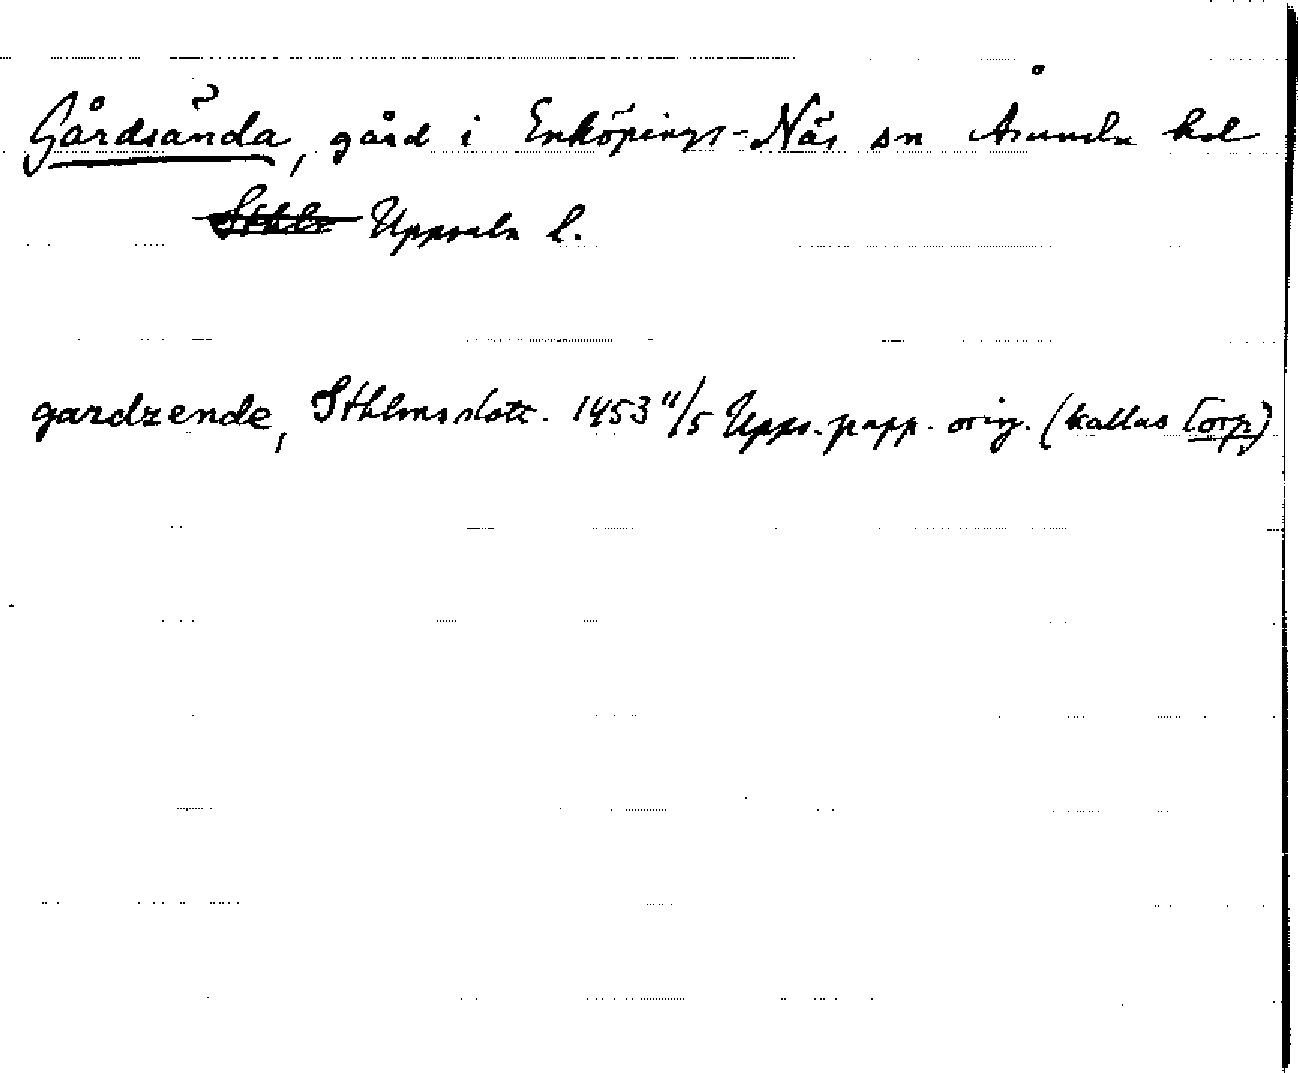 Gårdsända, gård i Enköpings-Näs sn Åsunda hd
Uppsala l.
gardzende, Sthlms slott. 1453 11/5 Upps. papp. orig. (kallas torp)